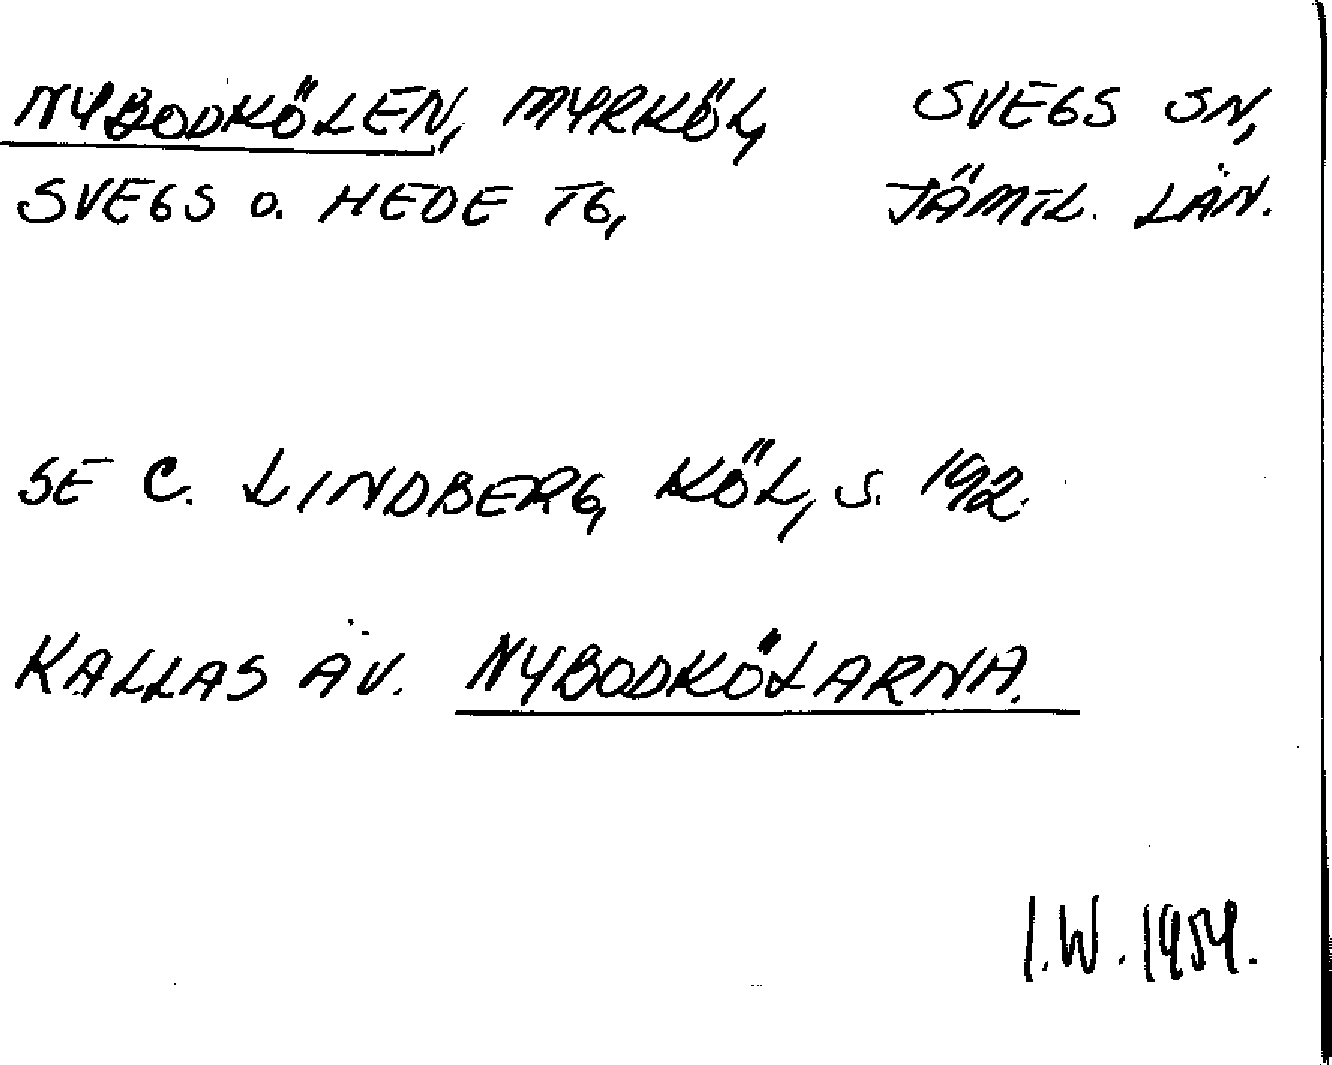 NYBODKÖLEN, MYRKÖL, SVEGS SN,
SVEGS O. HEDE TG, JÄMTL. LÄN.
SE C. LINDBERG, KÖL, S. 192.
KALLAS ÄV. NYBODKÖLARNA.
I.W. 1954.